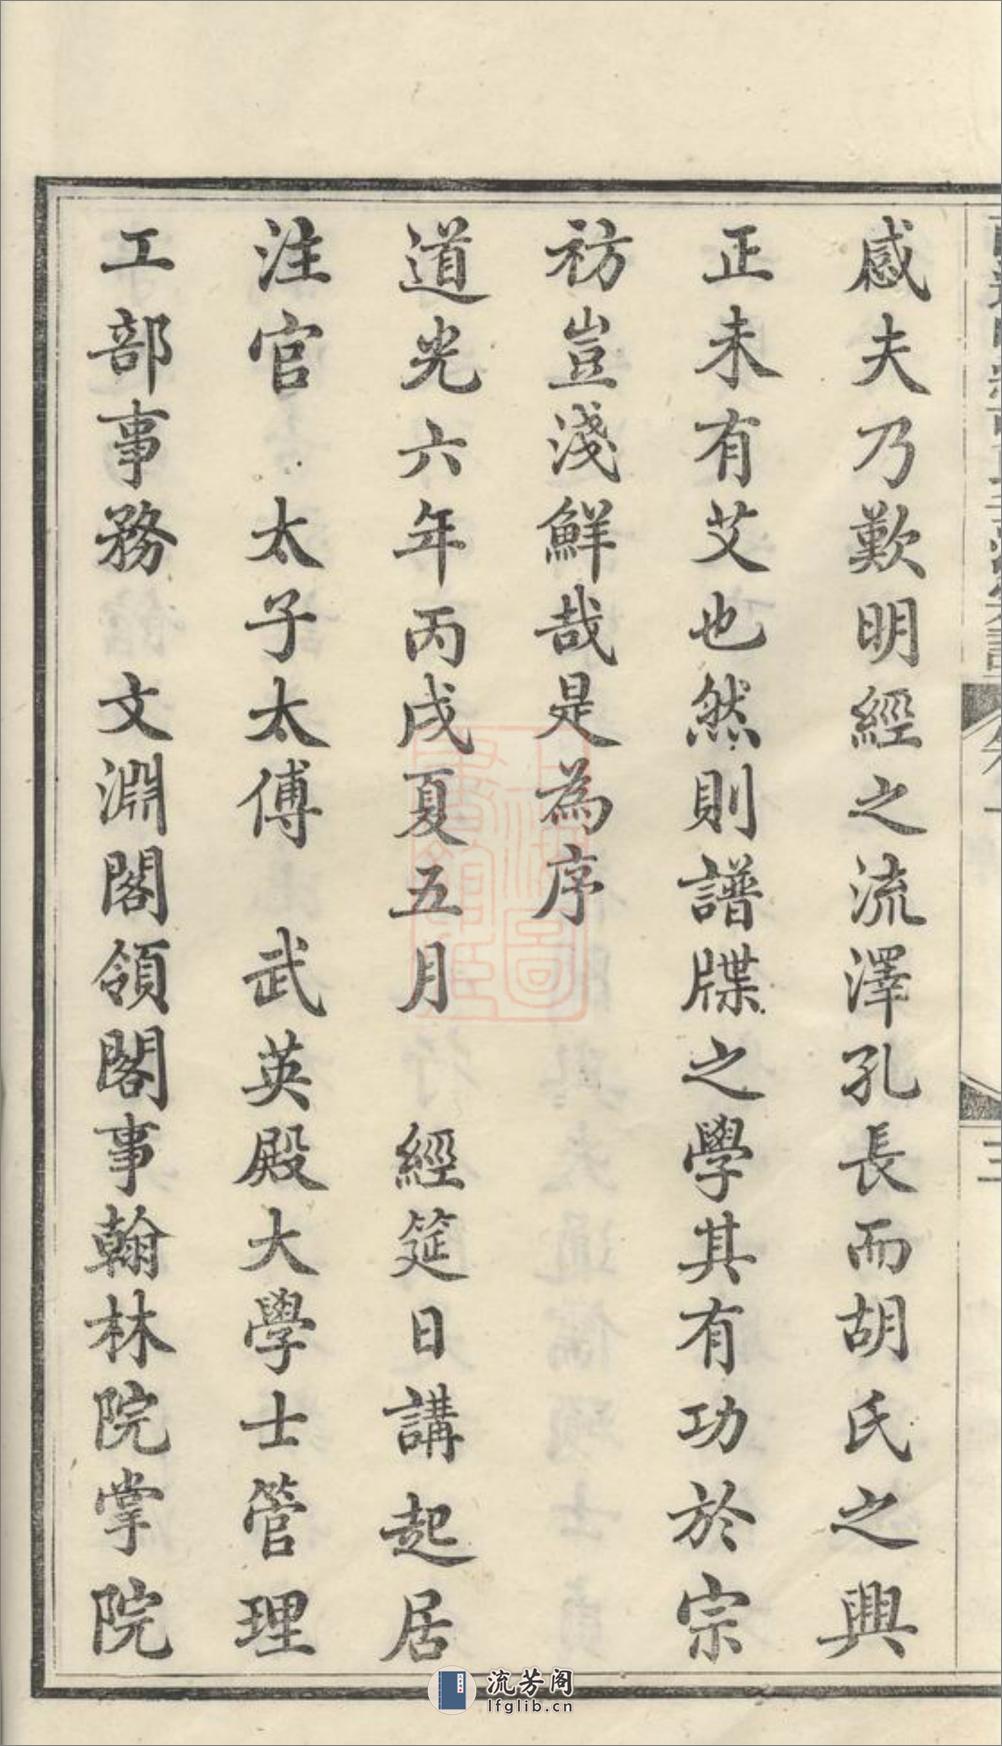 感夫乃歎明經之流澤孔長而胡氏之興
正未有艾也然則譜牒之學其有功於宗
祊豈淺鮮哉是為序
道光六年丙戌夏五月　經筵日講起居
注官　太子太傅　武英殿大學士管理
工部事務　文淵閣領閣事翰林院掌院
流芳阁
lfglib.cn